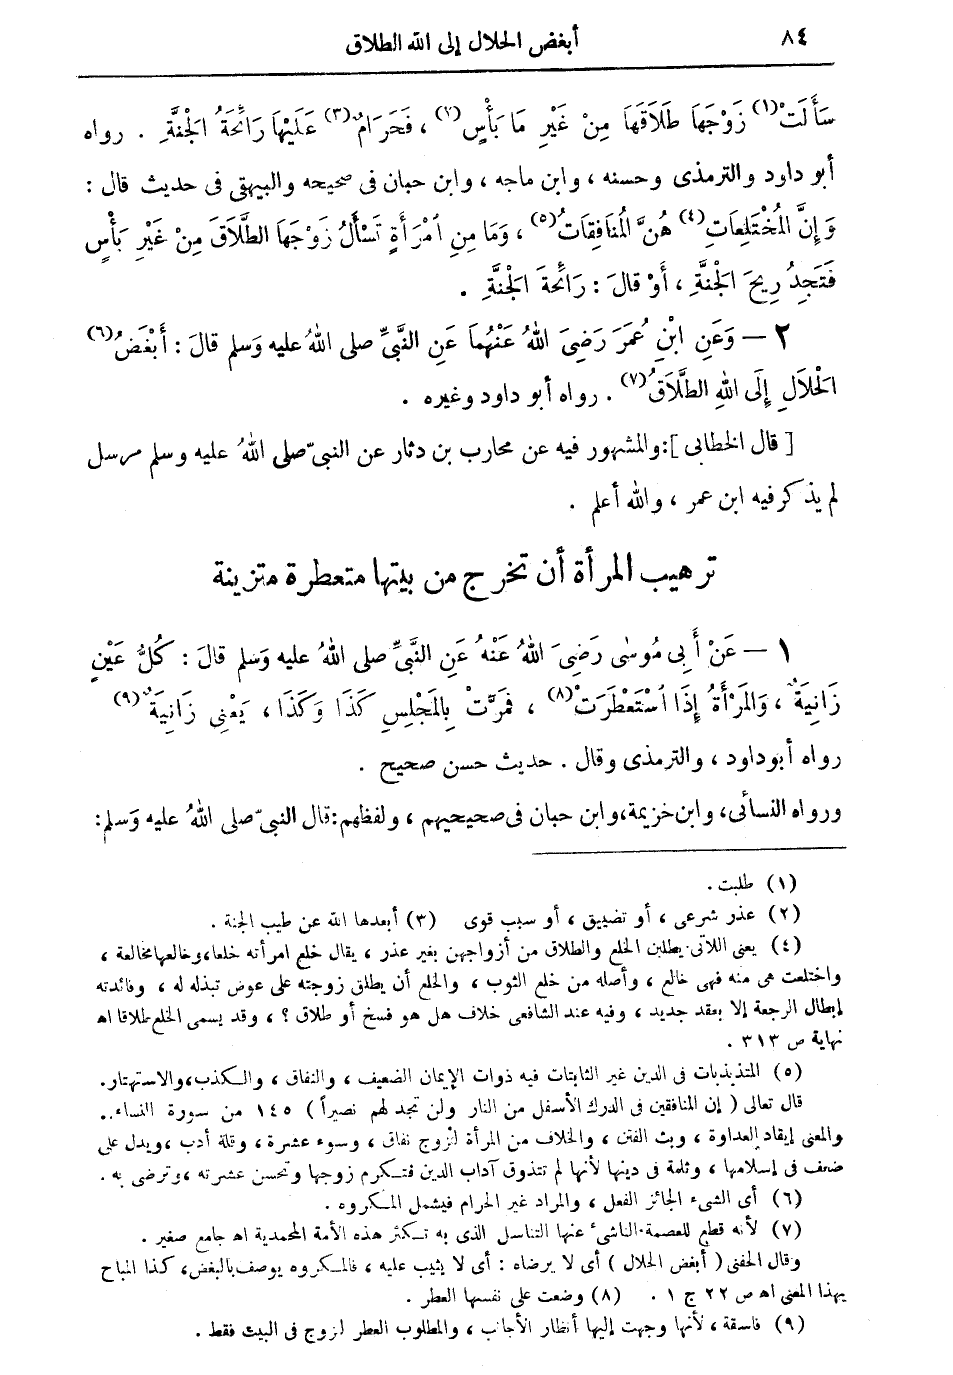 ٨٤ أبغض الحلال إلى الله الطلاق
سَأَلَتْ (١) زَوْجَهَا طَلَاقَهَا مِنْ غَيْرِ مَا بَأْسٍ (٢) ، فَحَرَامٌ (٣) عَلَيْهَا رَائِحَةُ الْجَنَّةِ . رواه
أبو داود والترمذى وحسنه ، وابن ماجه ، وابن حبان فى صحيحه والبيهقى فى حديث قال :
وَإِنَّ الْمُخْتَلِعَاتِ (٤) هُنَّ الْمُنَافِقَاتُ (٥) ، وَمَا مِنِ امْرَأَةٍ تَسْأَلُ زَوْجَهَا الطَّلَاقَ مِنْ غَيْرِ بَأْسٍ
فَتَجِدُ رِيحَ الْجَنَّةِ ، أَوْ قَالَ : رَائِحَةَ الْجَنَّةِ .
٢ — وَعَنِ ابْنِ عُمَرَ رَضِىَ اللهُ عَنْهُمَا عَنِ النَّبِىِّ صلى اللهُ عليه وَسلم قالَ : أَبْغَضُ (٦)
الْحَلَالِ إِلَى اللهِ الطَّلَاقُ (٧) . رواه أبو داود وغيره .
[ قال الخطابى ]: والمشهور فيه عن محارب بن دثار عن النبىّ صلى اللهُ عليه وسلم مرسل
لم يذكر فيه ابن عمر ، والله أعلم .
ترهيب المرأة أن تخرج من بيتها متعطرة متزينة
١ — عَنْ أَبِى مُوسٰى رَضِىَ اللهُ عَنْهُ عَنِ النَّبِىِّ صلى اللهُ عليه وَسلم قالَ : كُلُّ عَيْنٍ
زَانِيَةٌ ، وَالْمَرْأَةُ إِذَا اسْتَعْطَرَتْ (٨) ، فَمَرَّتْ بِالْمَجْلِسِ كَذَا وَكَذَا ، يَعْنِى زَانِيَةٌ (٩)
رواه أبو داود ، والترمذى وقال . حديث حسن صحيح .
ورواه النسائى، وابن خزيمة، وابن حبان فى صحيحيهم ، ولفظهم: قال النبىّ صلى اللهُ عليه وَسلم:
(١) طلبت .
(٢) عذر شرعى ، أو تضييق ، أو سبب قوى (٣) أبعدها الله عن طيب الجنة .
(٤) يعنى اللاتى يطلبن الخلع والطلاق من أزواجهن بغير عذر ، يقال خلع امرأته خلعا، وخالعها مخالعة ،
واختلعت هى منه فهى خالع ، وأصله من خلع الثوب ، والخلع أن يطلق زوجته على عوض تبذله له ، وفائدته
إبطال الرجعة إلا بعقد جديد ، وفيه عند الشافعى خلاف هل هو فسخ أو طلاق ؟ ، وقد يسمى الخلع طلاقا اه
نهاية ص ٣١٣ .
(٥) المتذبذبات فى الدين غير الثابتات فيه ذوات الإيمان الضعيف ، والنفاق ، والكذب، والاستهتار.
قال تعالى ( إن المنافقين فى الدرك الأسفل من النار ولن تجد لهم نصيراً ) ١٤٥ من سورة النساء..
والمعنى إيقاد العداوة ، وبث الفتن ، والخلاف من المرأة لزوج نفاق ، وسوء عشرة ، وقلة أدب ، ويدل على
ضعف فى إسلامها ، وثلمة فى دينها لأنها لم تتذوق آداب الدين فتكرم زوجها وتحسن عشرته ، وترضى به .
(٦) أى الشىء الجائز الفعل ، والمراد غير الحرام فيشمل المكروه .
(٧) لأنه قطع للعصمة الناشىء عنها التناسل الذى به تكثر هذه الأمة المحمدية اه جامع صغير .
وقال الحفنى ( أبغض الحلال ) أى لا يرضاه : أى لا يثيب عليه ، فالمكروه يوصف بالبغض، كذا المباح
بهذا المعنى اه ص ٢٢ ج ١ . (٨) وضعت على نفسها العطر .
(٩) فاسقة ، لأنها وجهت إليها أنظار الأجانب ، والمطلوب العطر لزوج فى البيت فقط .